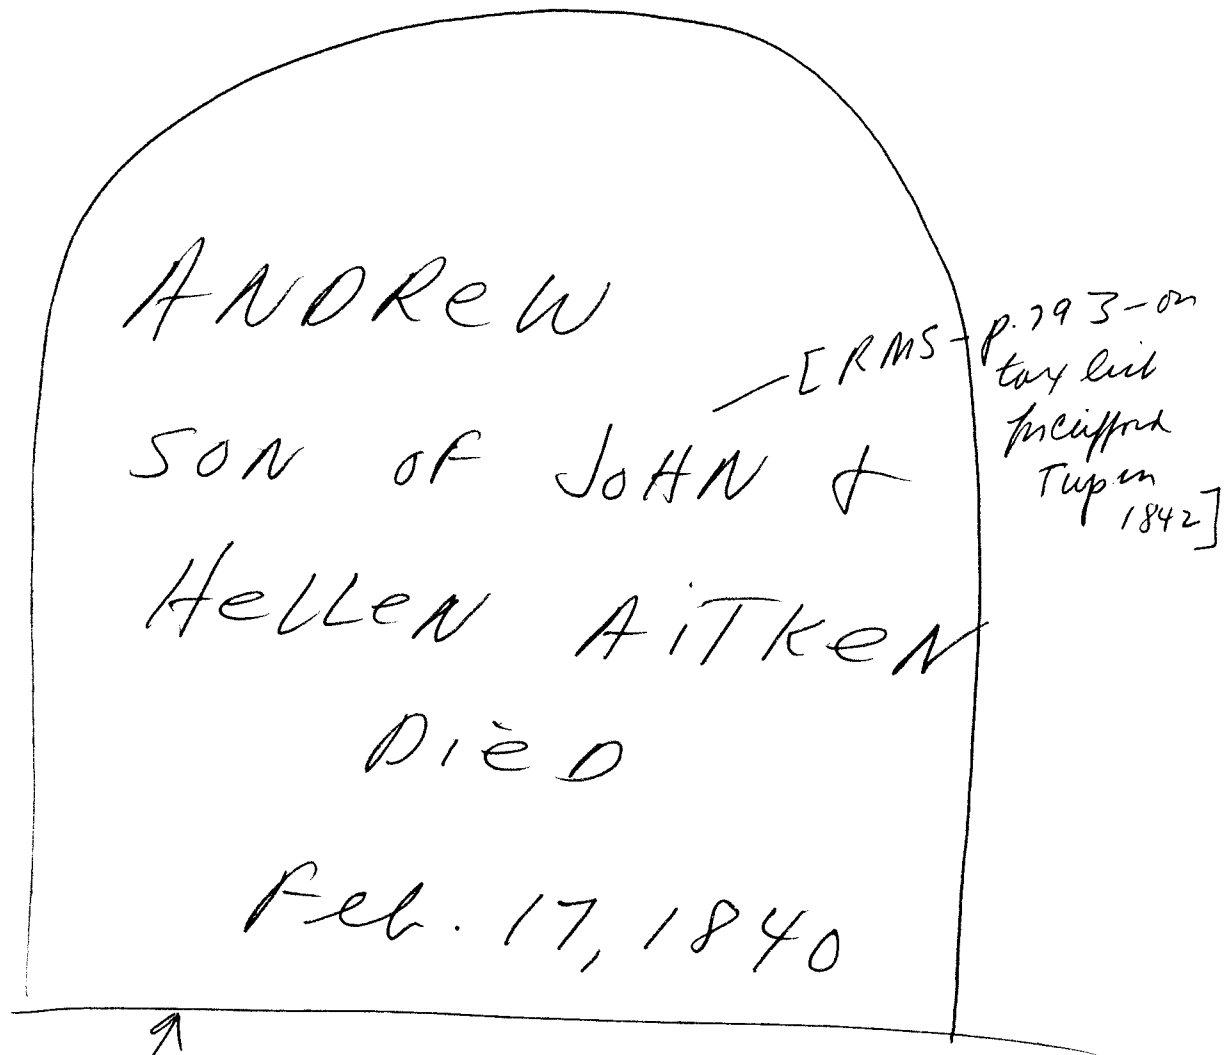 ANDReW
[RMS - p. 793 - on
tax list
for Clifford
Twp in
1842]
SON OF JOHN &
HeLLeN AiTKeN
DieD
Feb. 17, 1840